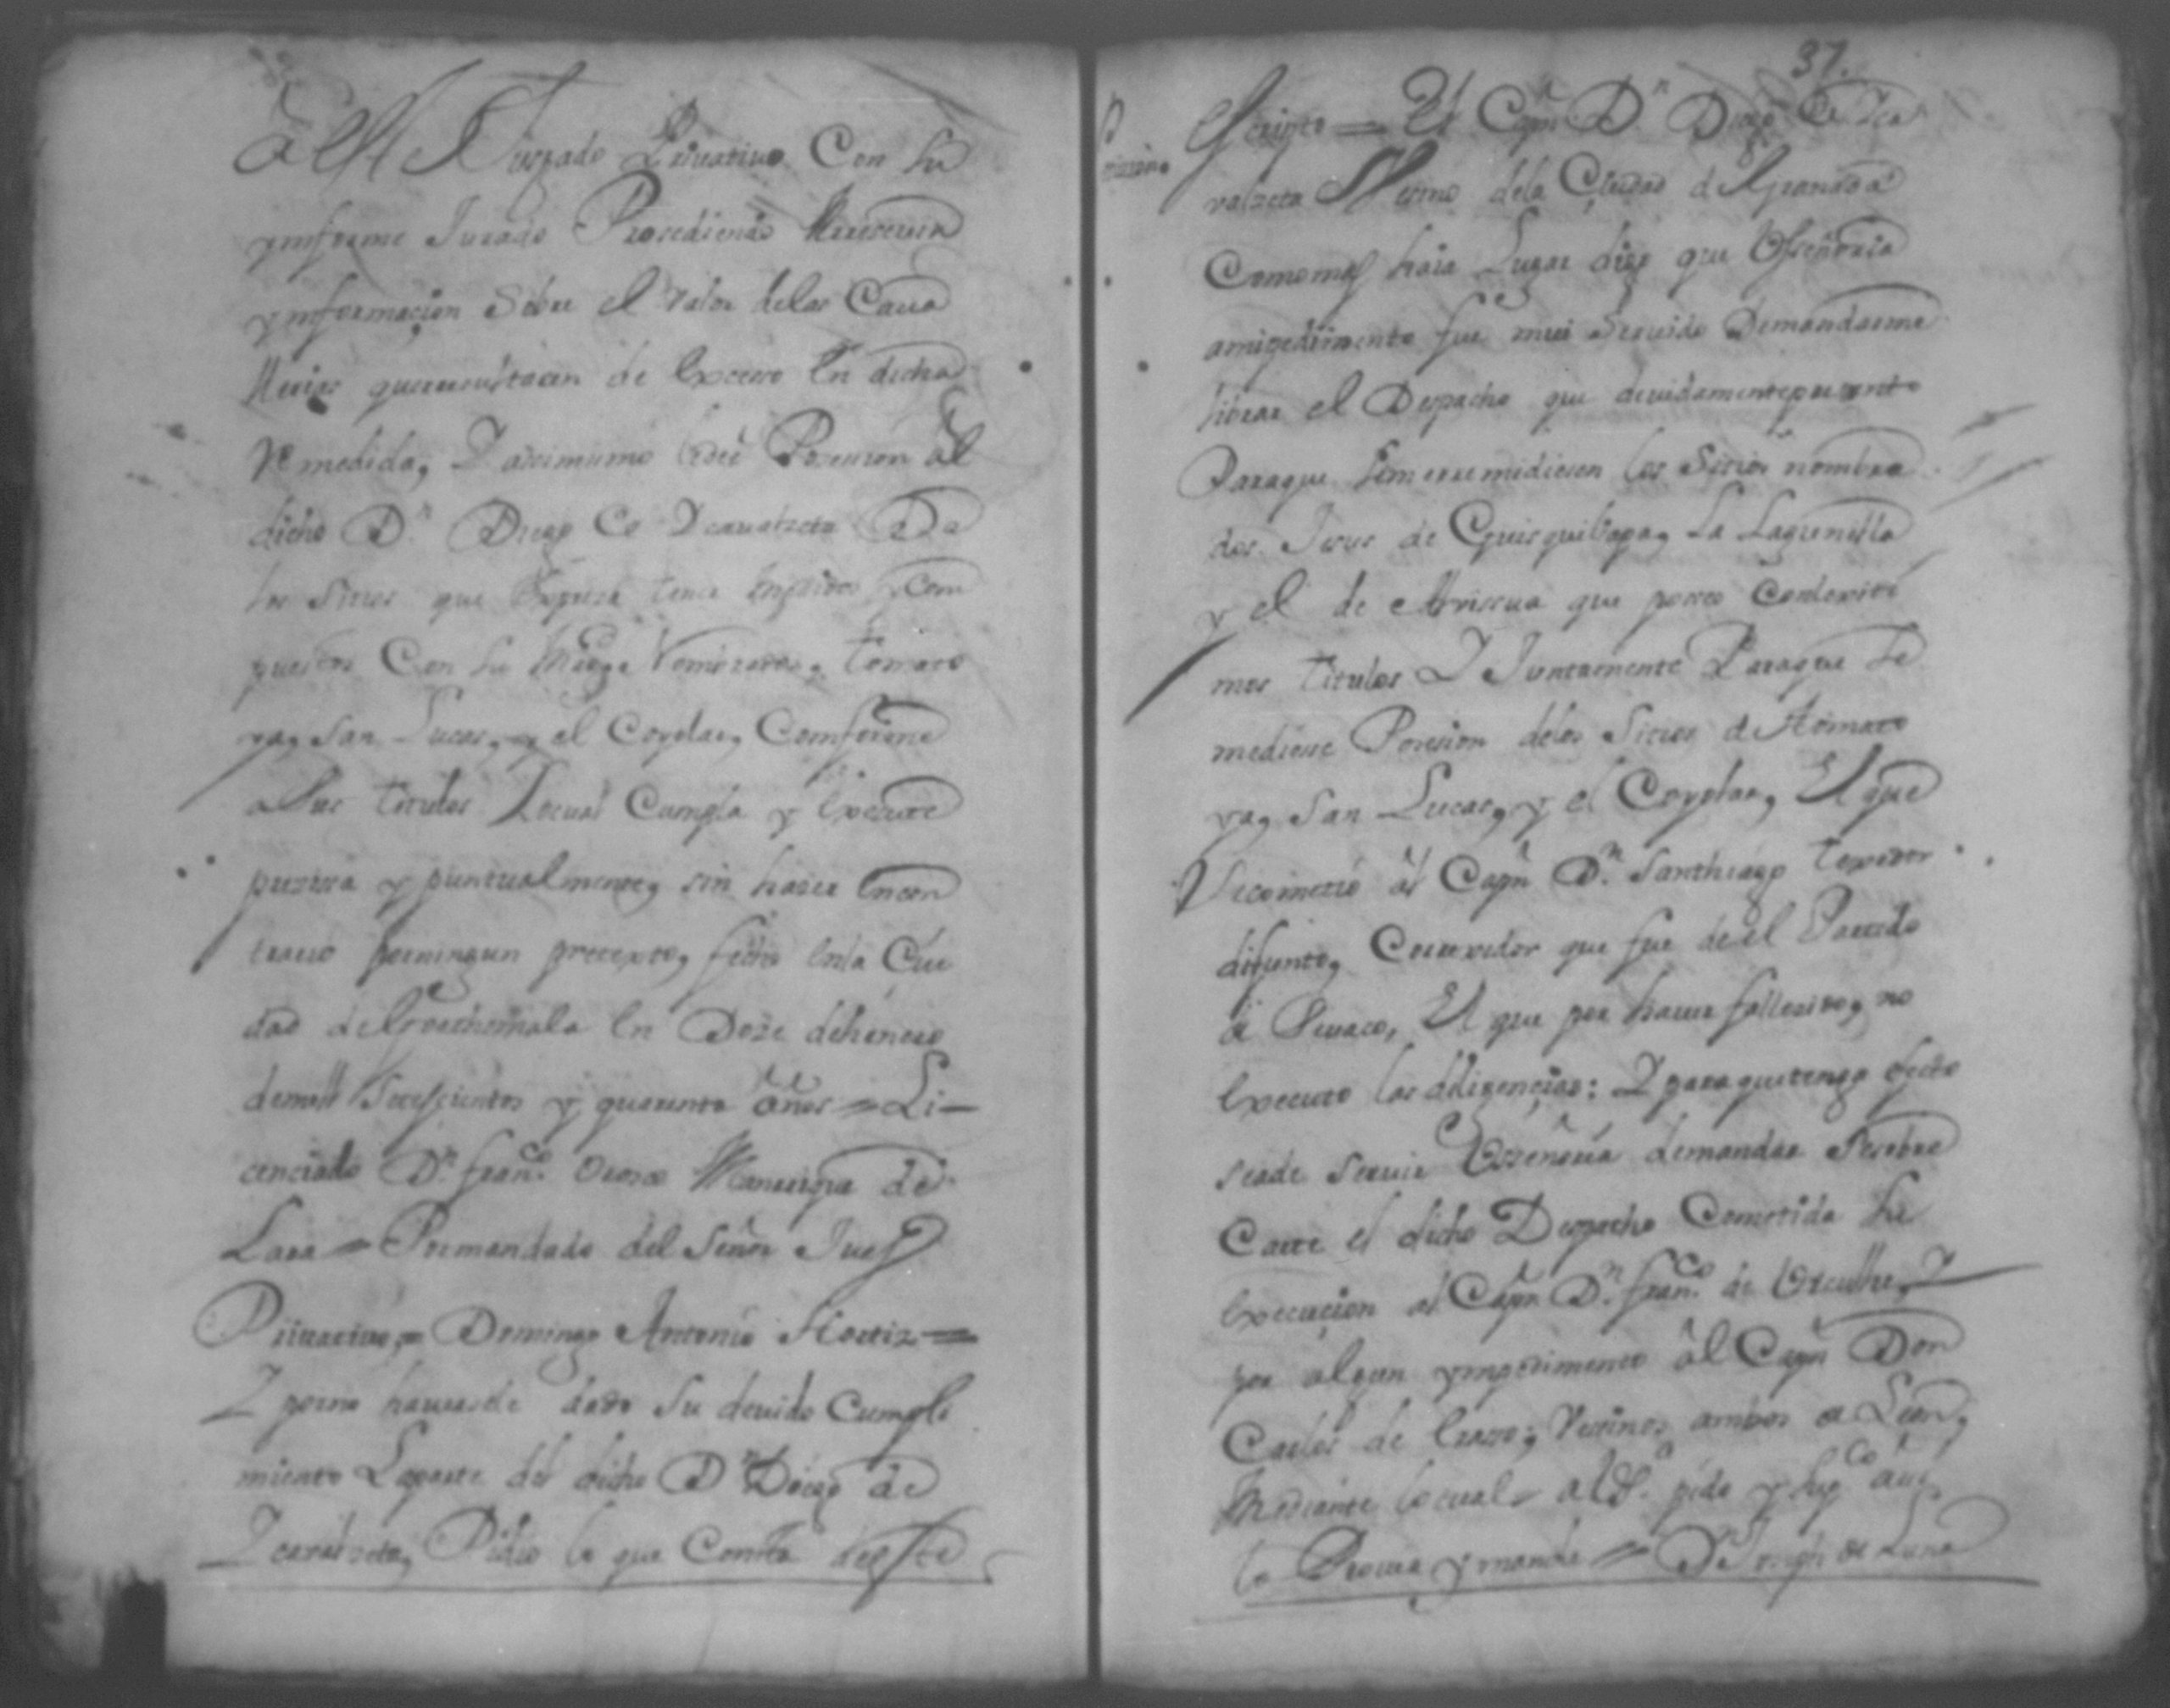 à este Jusgado Privativo Con su
ynforme Jurado Prosediendo Arreservir
ynformaçion Sobre el valor delas Cava
llerias queresultaren de exceso En dicha
Remedida, Y asimismo le dè Posesion àl
dicho Dn. Diego de Ycaualzeta De
los Sitios que Expresa tener y com
puestos Con su Magd. Nombrados, tomato
ya, San Lucas, y el Coyolar, Comforme
a sus titulos Locual Cumpla y Execute
precisa y puntualmente, sin haser Encon
trario porningun pretexto, fecho Enla Ciu
dad de Goathemala En Dose dehenero
demill Setesçientos y quarenta años = Li-
cenciado Dn. Franco. Orosco Manrrique de
Lara = Pormandado del Señor Jues
Privativo, = Domingo Antonio Hortiz =
Y porno haverse dado Su devido Cumpli
miento Laparte del dicho Dn. Diego de
Ycaualzeta, Pidio lo que Consta deeste
37.
Escripto = El Capn. Dn. Diego de Yca
valzeta Vezino dela Ciudad de Granada
Comomas haia Lugar digo que Vseñoria
amipedimento fue mui Servido Demandarme
librar el Despacho que devidamentepresento
Paraque semeremidiesen los Sitios nombra
dos Jesus de Quisquiliapa, La Lagunilla
y el de que poseo Conlexiti
mos titulos Y Juntamente Paraque Se
mediese Posesion delos Sitios de tomato
ya, San Lucas, y el Coyolar, El que
Secometió àl Capn. Dn. Santhiago texedor
difunto, Correxidor que fue de el Partido
de Sevaco, El que por haver fallesido, no
Executo las diligençias: Y para quetenga efecto
seade Servir Vsseñoria demandar Sesobre
Carte el dicho Despacho Cometida su
Execuçion al Capn. Dn. Franco. de Y
por algun ympedimento àl Capn. Don
Carlos de Erazo, Vezinos ambos de Leon,
Mediante locual = a V.S. pido y supco. asi
lo Provea y mande = Dn. Joseph de Luna